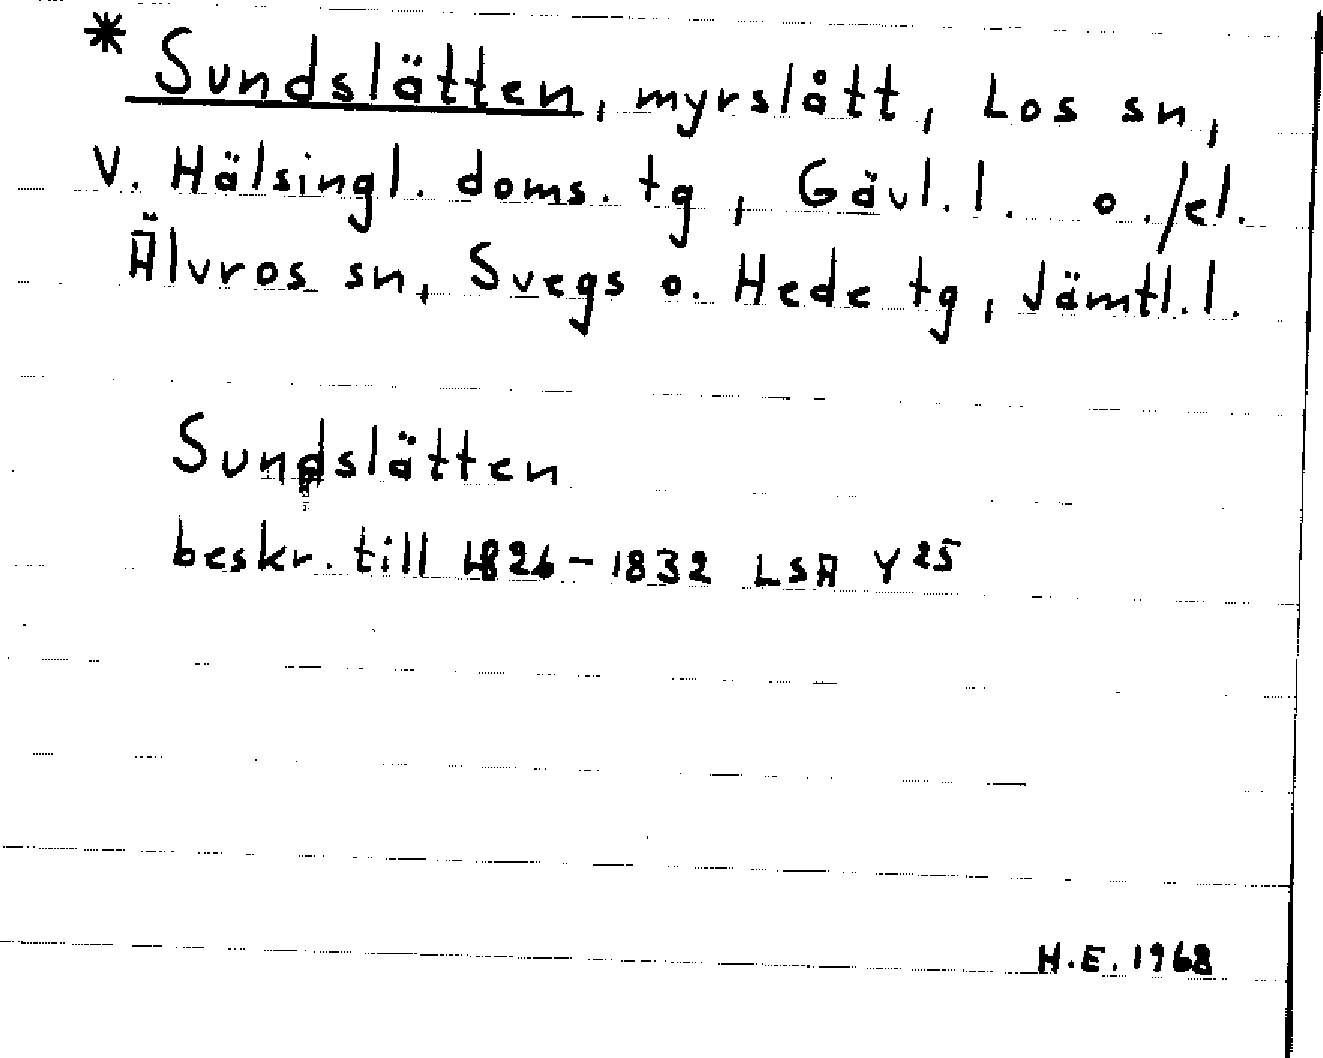 * Sundslätten, myrslått, Los sn,
V. Hälsingl. doms. tg, Gävl. l. o./el.
Älvros sn, Svegs o. Hede tg, Jämtl. l.
Sundslätten
beskr. till 1826-1832 LSA Y25
H.E. 1968